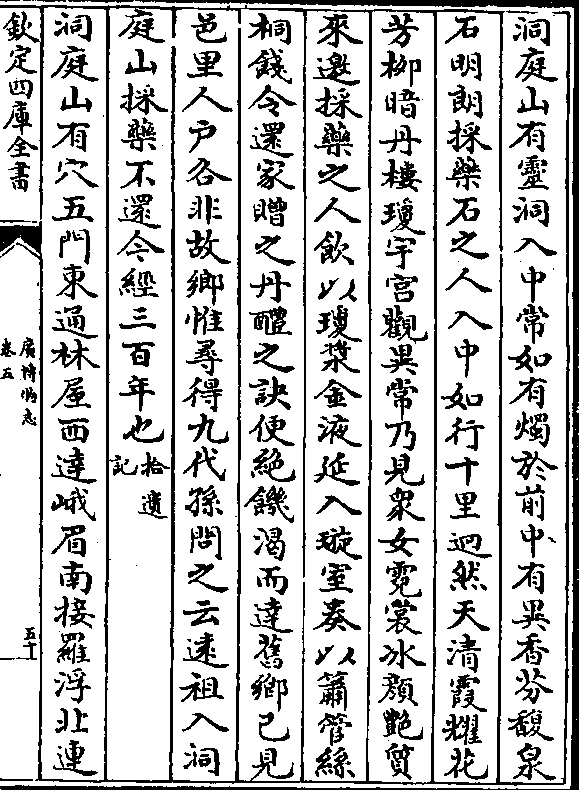 洞庭山有靈洞入中常如有燭於前中有異香芬馥泉
石明朗採藥石之人入中如行十里迥然天清霞耀花
芳柳暗丹樓瓊宇宮觀異常乃見衆女霓裳冰顔艶質
來邀採藥之人飲以瓊漿金液延入璇室奏以簫管絲
桐餞令還家贈之丹醴之訣便絶饑渴而達舊鄉已見
邑里人戸各非故鄉惟尋得九代孫問之云遠祖入洞
庭山採藥不還今經三百年也拾遺記
洞庭山有穴五門東通林屋西達峨眉南接羅浮北連
欽定四庫全書
廣博物志
卷五
五十